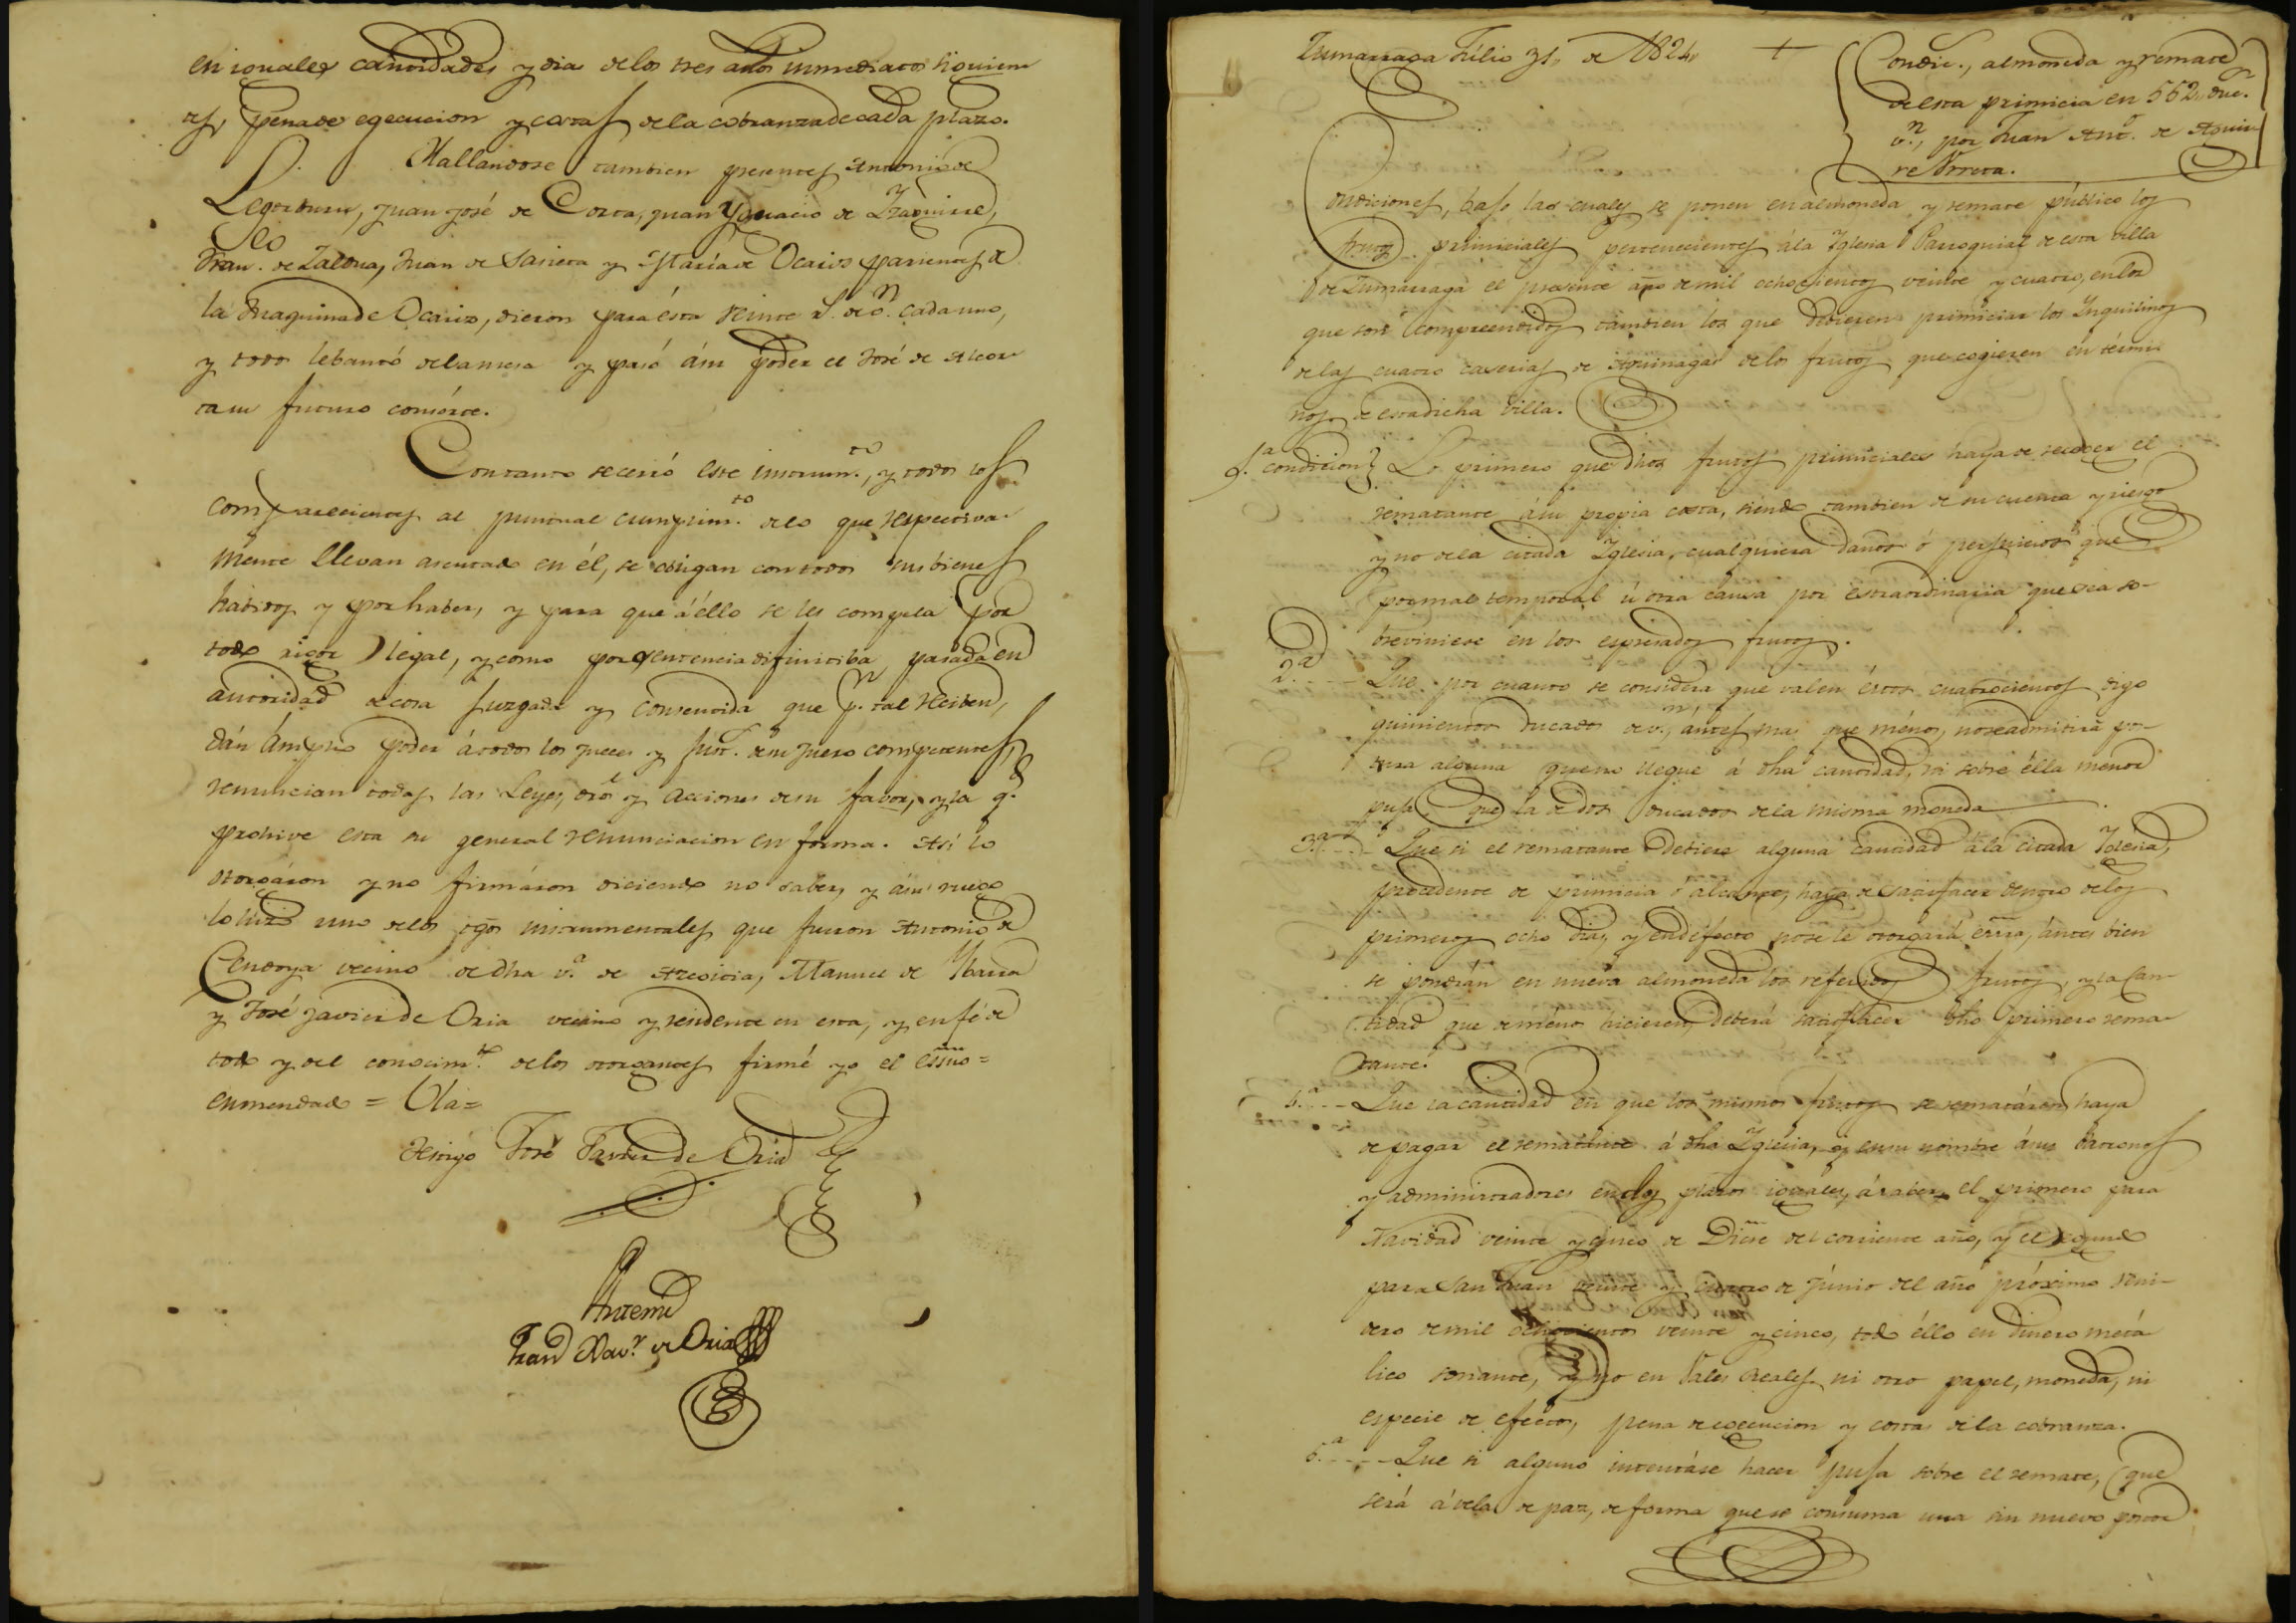 en iguales cantidades y dia de los tres años inmediatos siguien
tes, pena de egecucion y costas de la cobranza de cada plazo.
Hallandose tambien presentes Antonio de
Legorburu, Juan José de Corta, Juan Ygnacio de Izaguirre,
Fran.co de Zaldua, Juan de Sarieta y María de Ocariz parientes de
la Maquina de Ocariz, dieron para ésta veinte r.s de v.n cada uno,
y todo lebantó de la mesa y pasó á su poder el José de Alcor
ta su futuro consórte.
Con tanto se cerró este instrum.to, y todos los
comparecientes al puntual cumplim.to de lo que respectiva
mente llevan asentado en él, se obligan con todos sus bienes
habidos y por haber, y para que á éllo se les compela por
todo rigor legal, y como por sentencia difinitiba pasada en
autoridad de cosa juzgada y consentida que p.r tal reciben,
dán ámplio poder á todos los jueces y just.s de su fuero competentes,
renuncian todas las Leyes, dros y acciones de su favor, y la q.e
prohive esta su general renunciacion en forma. Así lo
otorgáron y no firmáron diciendo no saber, y á su ruego
lo hizo uno de los tgos instrumentales que fueron Antonio de
Cendoya vecino de dha v.a de Azcoitia, Manuel de Ybarra
y José Javier de Oria vecino y residente en esta, y en fé de
todo y del conocim.to de los otorgantes firmé yo el essno =
enmendado = Ola =
Testigo José Javier de Oria
Antemi
Fran.co Xav.r de Oria
Zumarraga Júlio 31, de 1824,
Condic.s, almoneda y remate
de esta primicia en 562, duc.s
v.n, por Juan Ant.o de Aguir
re Urreta.
Condiciones, bajo las cuales se ponen en almoneda y remate público los
frutos primiciales pertenecientes á la Yglesia Parroquial de esta villa
de Zumarraga el presente año de mil ochocientos veinte y cuatro, en los
que son compreendidos tambien los que debieren primiciar los Ynquilinos
de las cuatro caserias de Aguinaga de los frutos que cogieren en térmi
nos de esta dicha villa.
1.a condicion} Lo primero que dhos frutos primiciales haya de recoger el
rematante á su propia costa, siendo tambien de su cuenta y riesgo
y no de la citada Yglesia, cualquiera daños ó perjuicios que
por mal temporal ú otra causa por estraordinaria que sea so-
breviniese en los espresados frutos.
2.a Que por cuanto se considera que valen éstos cuatrocientos digo
quinientos ducados de v.n, ántes mas que ménos, no se admitirá pos-
tura alguna que no llegue á dha cantidad, ni sobre élla menor
puja que la de dos ducados de la misma moneda.
3.a Que si el rematante debiere alguna cantidad á la citada Yglésia,
procedente de primicia ó alcance, haya de satisfacer dentro de los
primeros ocho dias, y en defecto no se le otorgará essra, ántes bien
se pondrán en nueva almoneda los referidos frutos, y la can-
tidad que de ménos hicieren, deberá satisfacer dho primero rema-
tante.
Que la cantidad en que los mismos frutos se rematáren, haya
de pagar el rematante á dha Yglésia, y en su nombre á sus Patronos
y administradores en dos plazos iguales, á saber, el primero para
Navidad veinte y cinco de Dicre del corriente año, y el segundo
para San Juan veinte y cuatro de Júnio del año próximo veni-
dero de mil ochocientos veinte y cinco, todo éllo en dinero metá
lico sonante, y no en Vales Reales ni otro papel, moneda, ni
especie de efectos, pena de egecucion y costas de la cobranza.
5.a Que si alguno intentáse hacer puja sobre el remate, que
será á vela de paz, de forma que se consuma una sin nuevo postor